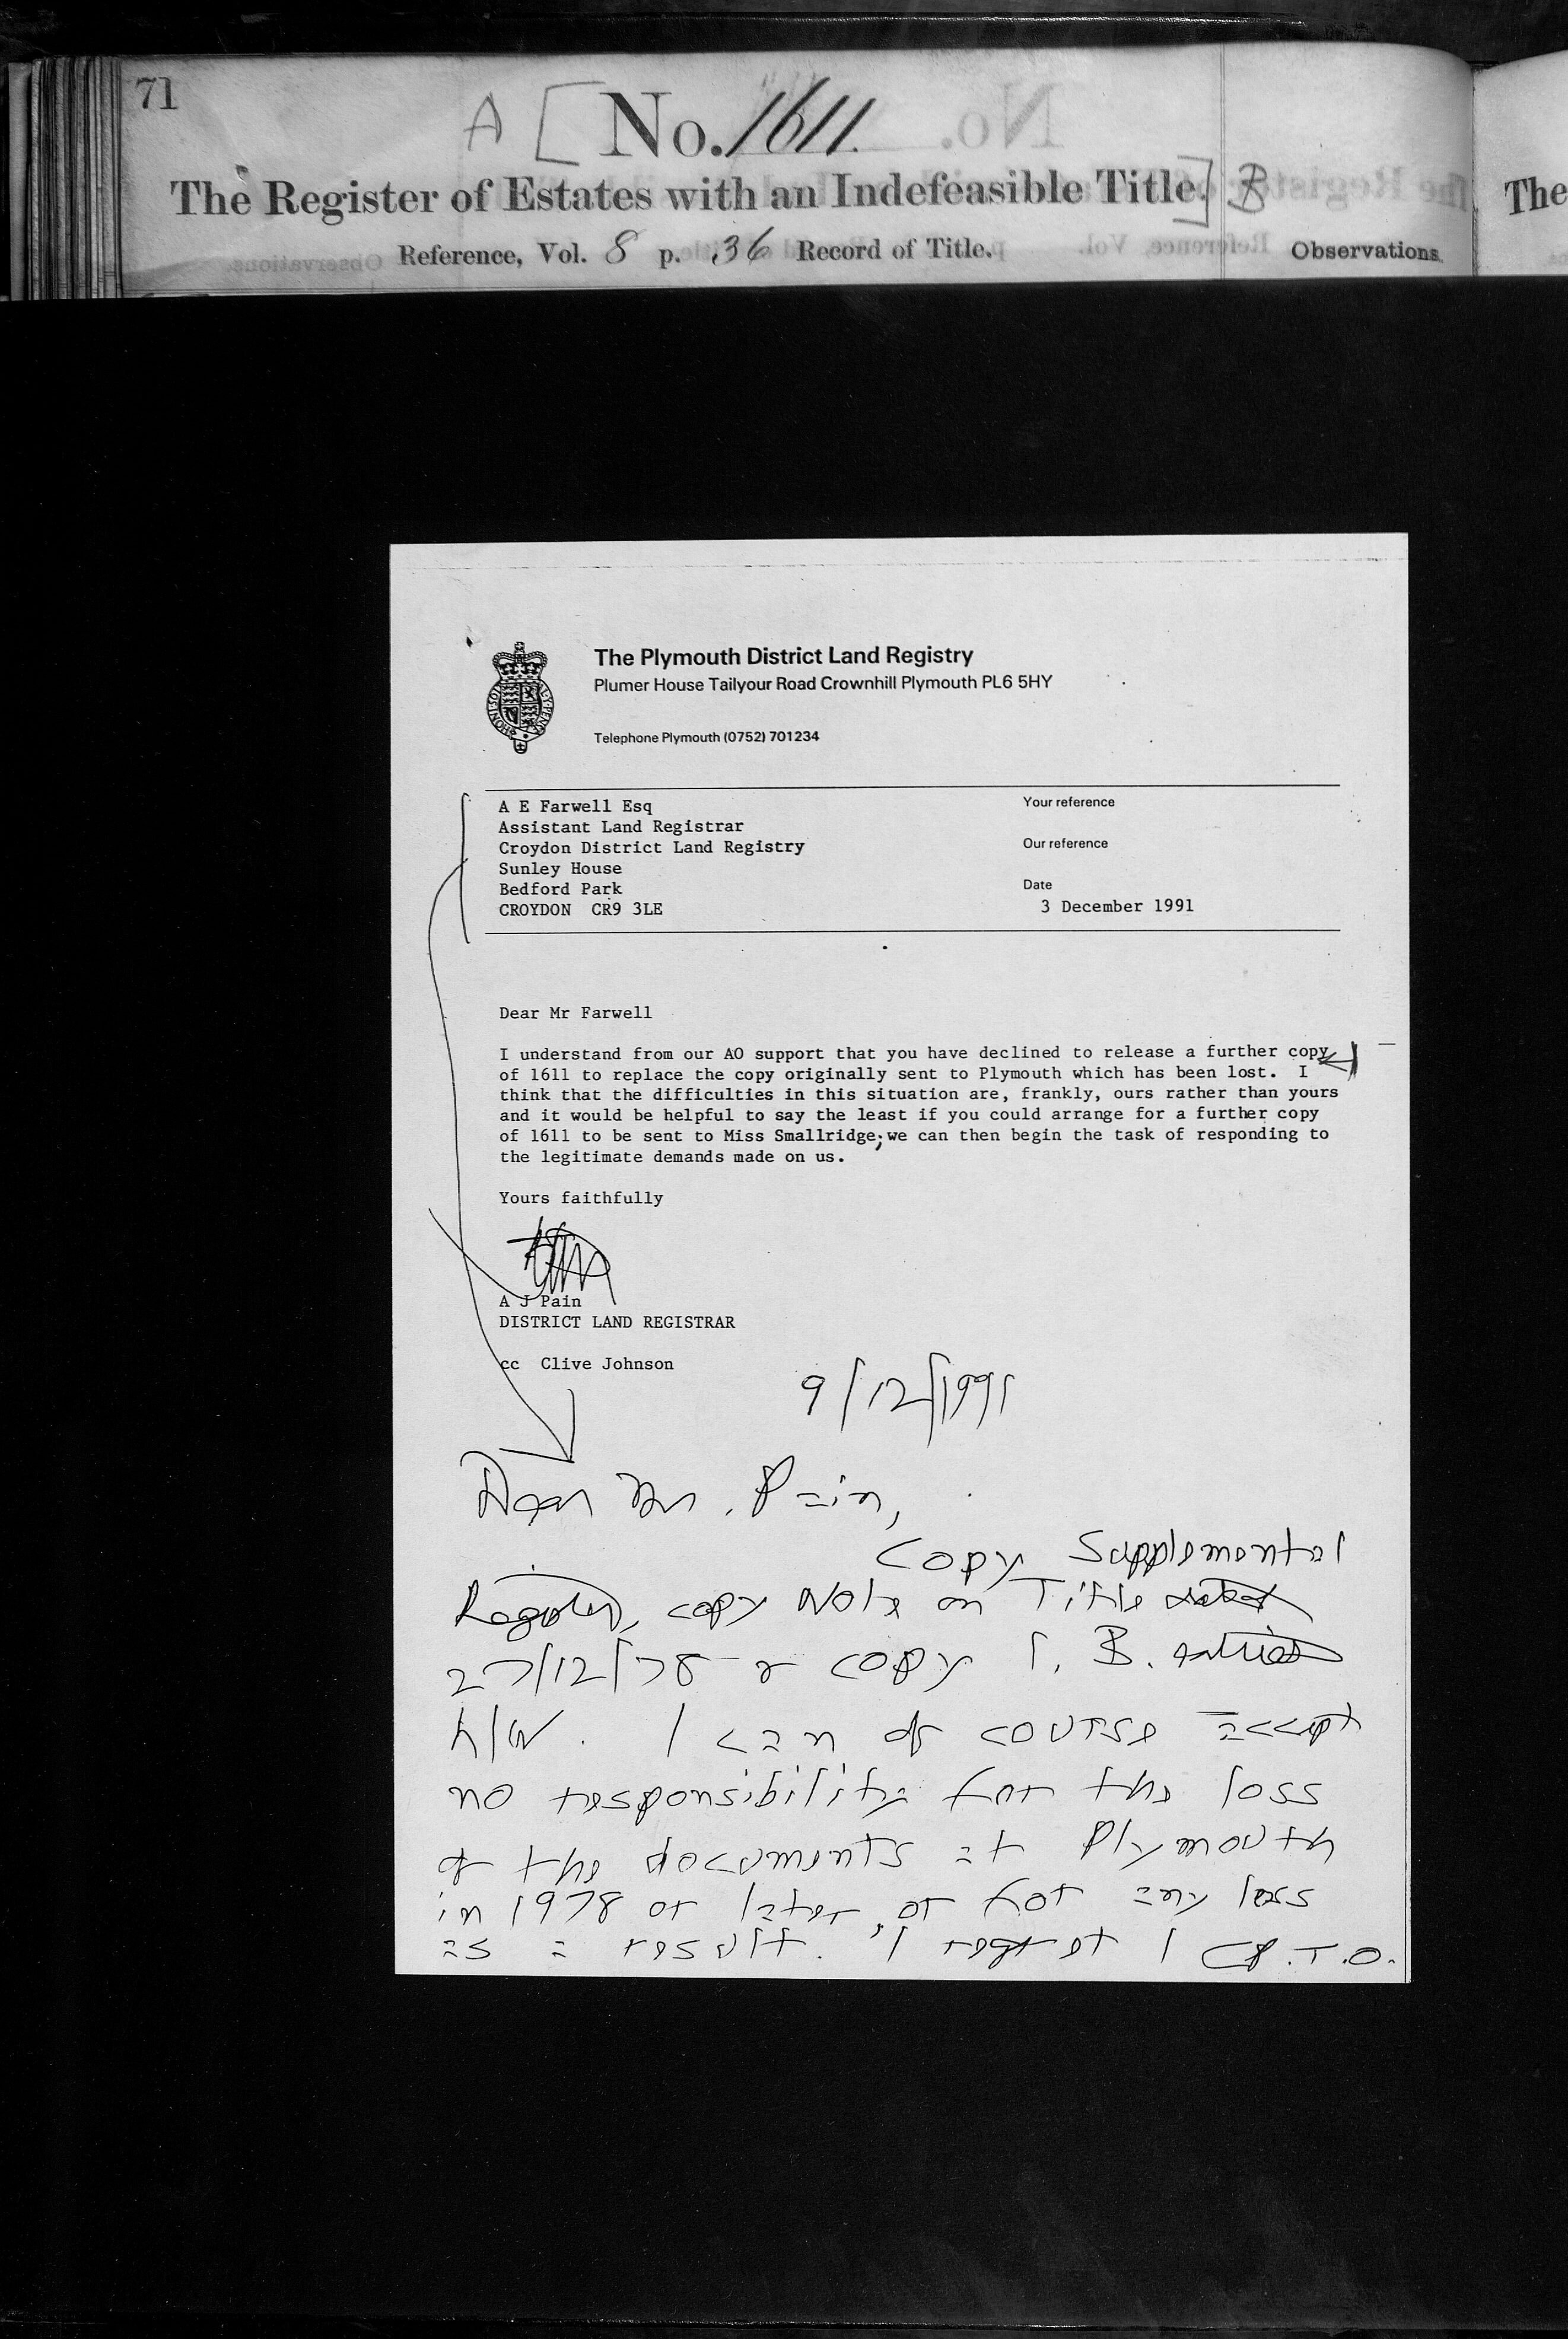 71
A [ No. 1611.
The Register of Estates with an Indefeasible Title. ] B
The
Reference, Vol. 8 p. 36 Record of Title.
Observations
The Plymouth District Land Registry
Plumer House Tailyour Road Crownhill Plymouth PL6 5HY
Telephone Plymouth (0752) 701234
A E Farwell Esq
Assistant Land Registrar
Croydon District Land Registry
Sunley House
Bedford Park
CROYDON CR9 3LE
Your reference
Our reference
Date
3 December 1991
Dear Mr Farwell
I understand from our AO support that you have declined to release a further copy
of 1611 to replace the copy originally sent to Plymouth which has been lost. I
think that the difficulties in this situation are, frankly, ours rather than yours
and it would be helpful to say the least if you could arrange for a further copy
of 1611 to be sent to Miss Smallridge; we can then begin the task of responding to
the legitimate demands made on us.
Yours faithfully
A J Pain
DISTRICT LAND REGISTRAR
cc Clive Johnson
9/12/1991
Dear Mr. Pain,
Copy Supplemental
Register, copy Note on Title dated
27/12/78 & copy I. B. entries
h/w. I can of course accept
no responsibility for the loss
of the documents at Plymouth
in 1978 or later, or for any loss
as a result. I regret I (P.T.O.